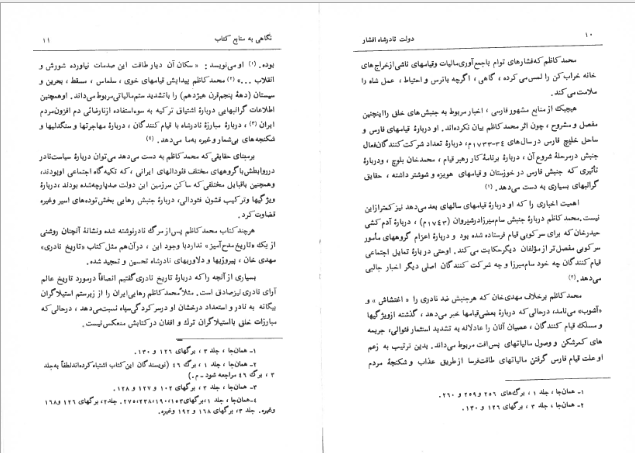 ۱۰
دولت نادرشاه افشار
محمدکاظم که فشارهای توام باجمع‌آوری مالیات وقیامهای ناشی ازخراج‌های
خانه خراب کن را لمس می‌کرده ، گاهی ، اگرچه باترس و احتیاط ، عمل شاه را
ملامت می‌کند.
هیچیک از منابع مشهور فارسی ، اخبار مربوط به جنبش‌های خلق را اینچنین
مفصل و مشروح ، چون اثر محمدکاظم بیان نکرده‌اند. او دربارهٔ قیامهای فارس و
ساحل خلیج فارس در سال‌های ۳۴–۱۷۳۳م، دربارهٔ تعداد شرکت کنندگان فعال
جنبش درمرحلهٔ شروع آن، دربارهٔ برنامهٔ کار رهبر قیام ، محمدخان بلوچ ، ودربارهٔ
تأثیری که جنبش فارس در خوزستان و قیامهای هویزه و شوشتر داشته ، حقایق
گرانبهای بسیاری به دست می‌دهد. (۱)
اهمیت اخباری را که او دربارهٔ قیامهای سالهای بعد می‌دهد نیز کمتر ازاین
نیست. محمدکاظم دربارهٔ جنبش سام‌میرزا درشیروان (۱۷۴۳م) ، دربارهٔ آدم کشی
حیدرخان که برای سرکوبی قیام فرستاده شده بود و دربارهٔ اعزام گروههای مأمور
سرکوبی مفصل‌تر از مؤلفان دیگرحکایت می‌کند. اوحتی دربارهٔ تمایل اجتماعی
قیام کنندگان چه خود سام‌میرزا و چه شرکت کنندگان اصلی دیگر اخبار جالبی
می‌دهد. (۲)
محمدکاظم برخلاف مهدی‌خان که هرجنبش ضد نادری را «اغتشاش» و
«آشوب» می‌نامد، درحالی که دربارهٔ بعضی قیامها خبر می‌دهد ، گذشته ازویژگیها
و مسلک قیام کنندگان ، عصیان آنان را عادلانه به تشدید استثمار فئوالی، جریمه
های کمرشکن و وصول مالیاتهای پس‌افت مربوط می‌داند. بدین ترتیب به زعم
او علت قیام فارس گرفتن مالیاتهای طاقت‌فرسا ازطریق عذاب و شکنجهٔ مردم
۱– همان‌جا ، جلد ۱ ، برگ‌های ۲۵۶ و ۲۵۹ و ۲۶۰.
۲– همان‌جا ، جلد ۲ ، برگهای ۱۲۶ و ۱۳۰.
نگاهی به منابع کتاب
۱۱
بوده. (۱) او می‌نویسد : «سکان آن دیار طاقت این صدمات نیاورده شورش و
انقلاب ...» (۲) محمدکاظم پیدایش قیامهای خوی ، سلماس ، مسقط ، بحرین و
سیستان (دههٔ پنجم قرن هیژدهم) را باتشدید ستم مالیاتی مربوط می‌داند. اوهمچنین
اطلاعات گرانبهایی دربارهٔ اشتیاق ترکیه به سوءاستفاده ازنارضائی دم افزون مردم
ایران (۳) ، دربارهٔ مبارزهٔ نادرشاه با قیام کنندگان ، دربارهٔ مهاجرتها و سنگدلیها و
شکنجه‌های بی‌شمار وغیره بما می‌دهد. (۴)
برمبنای حقایقی که محمدکاظم به دست می‌دهد می‌توان دربارهٔ سیاست نادر
درروابطش با گروههای مختلف فئودالهای ایرانی ، که تکیه گاه اجتماعی اوبودند،
وهمچنین باقبایل مختلفی که ساکن سرزمین این دولت صدپارچه‌شده بودند، دربارهٔ
ویژگیها وترکیب قشون فئودالی، دربارهٔ جنبش رهایی بخش توده‌های اسیر وغیره
قضاوت کرد.
هرچند کتاب محمدکاظم پس از مرگ نادرنوشته شده ونشانهٔ آنچنان روشنی
از یک «تاریخ مدح‌آمیز» ندارد با وجود این ، درآن هم مثل کتاب «تاریخ نادری»
مهدی خان ، پیروزیها و دلاوریهای نادرشاه تحسین و تمجید شده.
بسیاری از آنچه را که دربارهٔ تاریخ نادری گفتیم انصافاً درمورد تاریخ عالم
آرای نادری نیزصادق است. مثلاً محمدکاظم رهایی ایران را از زیرستم استیلاگران
بیگانه به نادر و استعداد درخشان او درسرکردگی سپاه نسبت می‌دهد ، درحالی که
مبارزات خلق با استیلاگران ترک و افغان درکتابش منعکس نیست.
۱– همان‌جا ، جلد ۲ ، برگهای ۱۲۶ و ۱۳۰.
۲– همان‌جا ، جلد ۱ ، برگ ۴۶ (نویسندگان این کتاب اشتباه کرده‌اند لطفاً به جلد
۲ ، برگ ۴۶ مراجعه شود – م.)
۳– همان‌جا ، جلد ۲ ، برگهای ۱۰۲ و ۱۲۷ و ۱۲۸.
وغیره. جلد ۳، برگهای ۱۶۸ و ۱۹۲ وغیره.